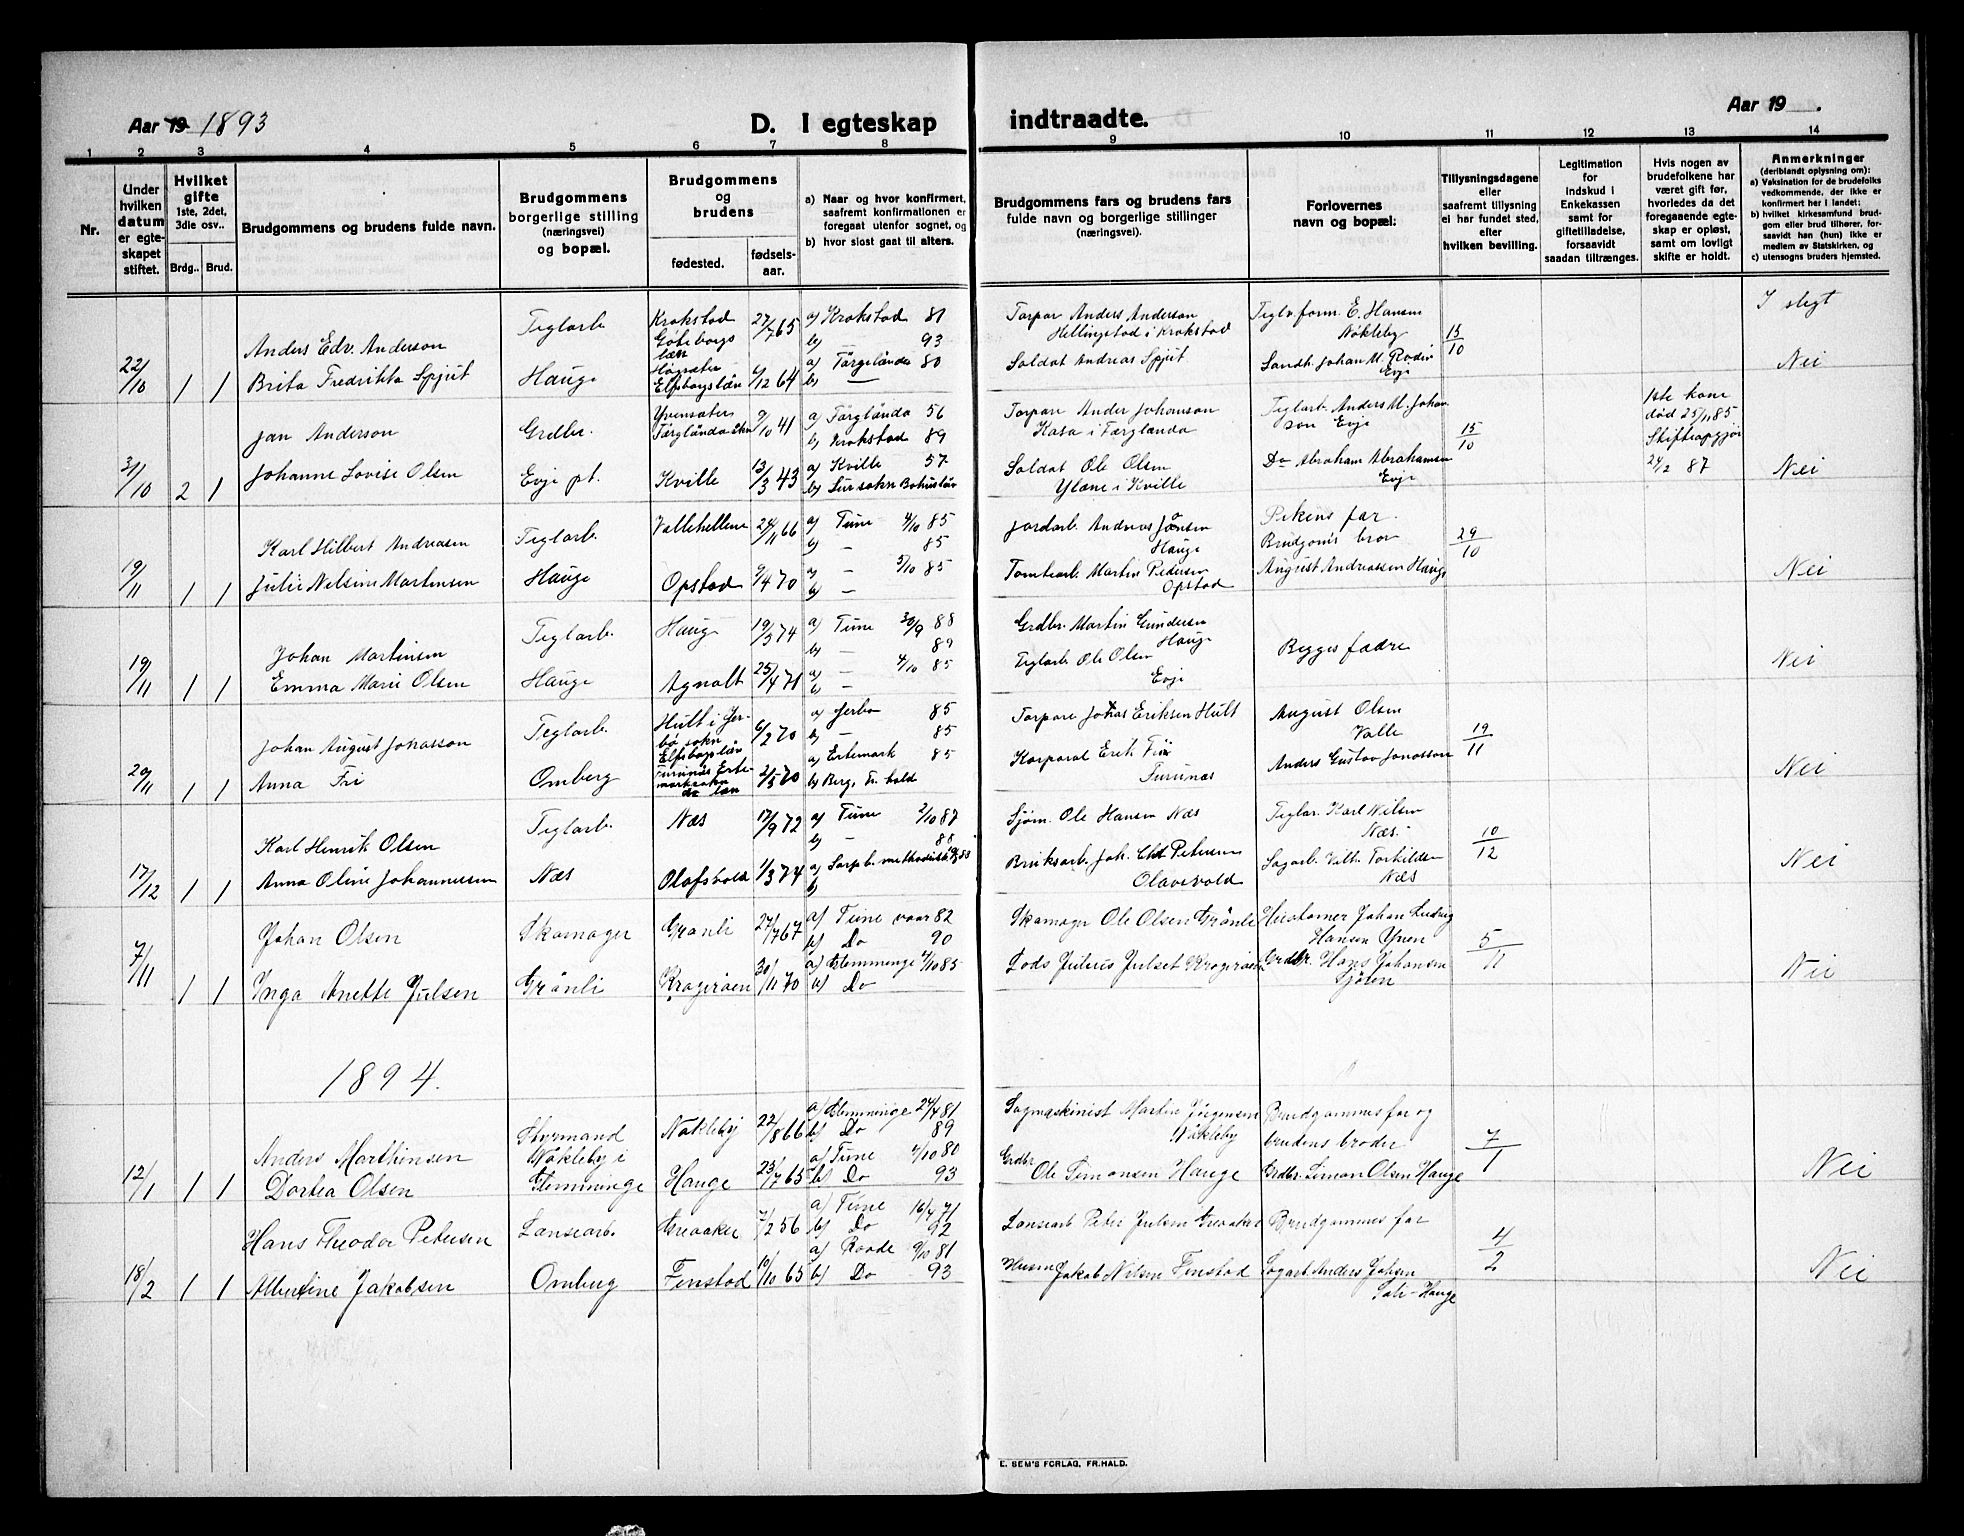 Aar 19 1893
D. I egteskap
indtraadte.
Aar 19 .
1 2 3 4 5 6 7 8 9 10 11 12 13 14
Nr.
Under hvilken datum er egteskapet stiftet.
Hvilket gifte 1ste, 2det, 3die osv..
Brdg.. Brud.
Brudgommens og brudens fulde navn.
Brudgommens borgerlige stilling (næringsvei) og bopæl.
Brudgommens og brudens
fødested.
fødselsaar.
a) Naar og hvor konfirmert, saafremt konfirmationen er foregaat utenfor sognet, og
b) hvor sidst gaat til alters.
Brudgommens fars og brudens fars fulde navn og borgerlige stillinger (næringsvei).
Forlovernes navn og bopæl:
Tillysningsdagene eller saafremt tillysning ei har fundet sted, efter hvilken bevilling.
Legitimation for indskud i Enkekassen samt for giftetilladelse, forsaavidt saadan tiltrænges.
Hvis nogen av brudefolkene har været gift før, hvorledes da det foregaaende egteskap er opløst, samt om lovligt skifte er holdt.
Anmerkninger (deriblandt oplysning om):
a) Vaksination for de brudefolks vedkommende, der ikke er konfirmert her i landet;
b) hvilket kirkesamfund brudgom eller brud tilhører, forsaavidt han (hun) ikke er medlem av Statskirken, og
c) utensogns bruders hjemsted.
I slegt
Anders Edv. Anderson Teglarb Krokstad Göteborgs län 27/7 65 a) Krokstad 81 b) — 93 Torpar Anders Anderson Hellingstad i Krokstad Teglv.form. E. Hansen Nøkleby 15/10
22/10 1 1 Brita Fredrikka Spjut Hauge Högsäter Elfsborgs län 6/12 64 a) Färgelända 80 b) — Soldat Andreas Spjut Landh. Johan M. Rodin Evje Nei
Jan Anderson Grdbr. Yvensäter Färglända skn 9/10 41 a) Färglända 56 b) Krokstad 89 Torpare Ander Johanson Kasa i Færglanda Teglarb. Anders M. Johanson Evje 15/10 1ste kone død 25/11 85 Skifteopgjör 24/2 87
3/10 2 1 Johanne Lovise Olsen Evje pt. Kville 13/3 43 a) Kville 57 b) Lur sokn Bohuslän Soldat Ole Olsen Ylane i Kville Do Abraham Abrahamsen Evje Nei
Karl Hilbert Andreasen Teglarb. Vallehellene 24/11 66 a) Tune 4/10 85 b) — 85 Jordarb. Andreas Jonsen Hauge Pikens far Brudgom's bror 29/10
19/11 1 1 Julie Nelsine Martinsen Hauge Opstad 9/4 70 a) — 5/10 85 b) — Tomtearb. Martin Pedersen Opstad August Andreassen Hauge Nei
Johan Martinsen Teglarb. Hauge 19/3 74 a) Tune 30/9 88 b) — 89 Grdbr. Martin Gundersen Hauge Begges fædre
19/11 1 1 Emma Marie Olsen Hauge Agnalt 25/4 71 a) — 4/10 85 b) — Teglarb Ole Olsen Evje Nei
Johan August Johasson Teglarb. Hult i Jerbo sokn Elfsborgs län 6/2 70 a) Jerbo 85 b) — 85 Torpare Johas Eriksen Hult August Olsen Valle 19/11
20/11 1 1 Anna Fri Omberg Furunäs Ertemark sokn do län 2/5 70 a) Ertemark 85 b) Berg, Fr.hald Korporal Erik Fri Furunäs Anders Gustav Jonasson Nei
Karl Henrik Olsen Teglarb. Næs 17/9 72 a) Tune 2/10 87 b) — 88 Sjöm. Ole Hansen Næs Teglar. Karl Nilsen Næs. 10/12
17/12 1 1 Anna Oline Johannessen Næs Olafsvold 1/3 74 a) Sarpb. methodistk b) Bruksarb. Joh. Chr. Petersen Olavsvold Sagarb. Vilh. Torkildsen Næs Nei
Johan Olsen Skomager Grönli 27/7 67 a) Tune vaar 82 b) Do 90 Skomager Ole Olsen Grönli Hustomer Johan Ludvig Hansen Yven 5/11
7/11 1 1 Inga Anette Julsen Grönli Kragerøen 30/11 70 a) Glemminge 4/10 85 a) Do Lods Julius Julset Kragerøen Grdbr. Hans Johansen Sjöen Nei
1894.
Anders Marthinsen Styrmand Nökleby i Glemminge Nøkleby 22/8 66 a) Glemminge 24/4 81 b) Do 89 Sagmaskinist Martin Jörgensen Nökleby Brudgommens far og brudens broder 7/1
12/1 1 1 Dortea Olsen Hauge 23/7 65 a) Tune 4/10 80 b) Do 93 Grdbr Ole Simonsen Hauge Grdbr. Simon Olsen Hauge Nei
Hans Theodor Petersen Lansearb. Greaaker 7/2 56 a) Tune 16/4 71 b) Do 92 Lansearb Peter Julsen Greaaker Brudgommens far 4/2
18/2 1 1 Albertine Jakobsen Omberg Finstad 10/10 65 a) Raade 9/10 81 b) Do 93 Husm Jakob Nilsen Finstad Sagarb. Anders Johsen Sole-Hauge Nei
E. SEM'S FORLAG, FR.HALD.